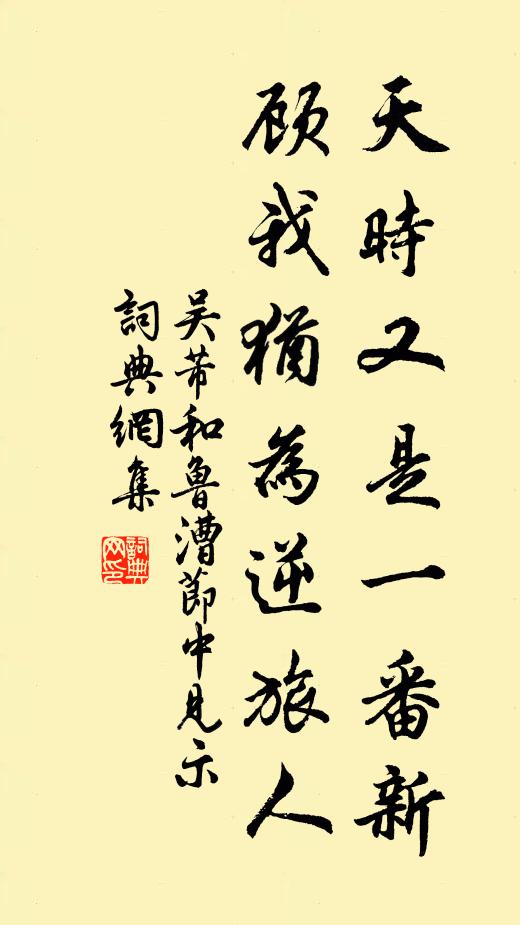 天時又是一番新
顧我猶為逆旅人
吴芾和魯漕節中見示
詞典網集
詞典网印